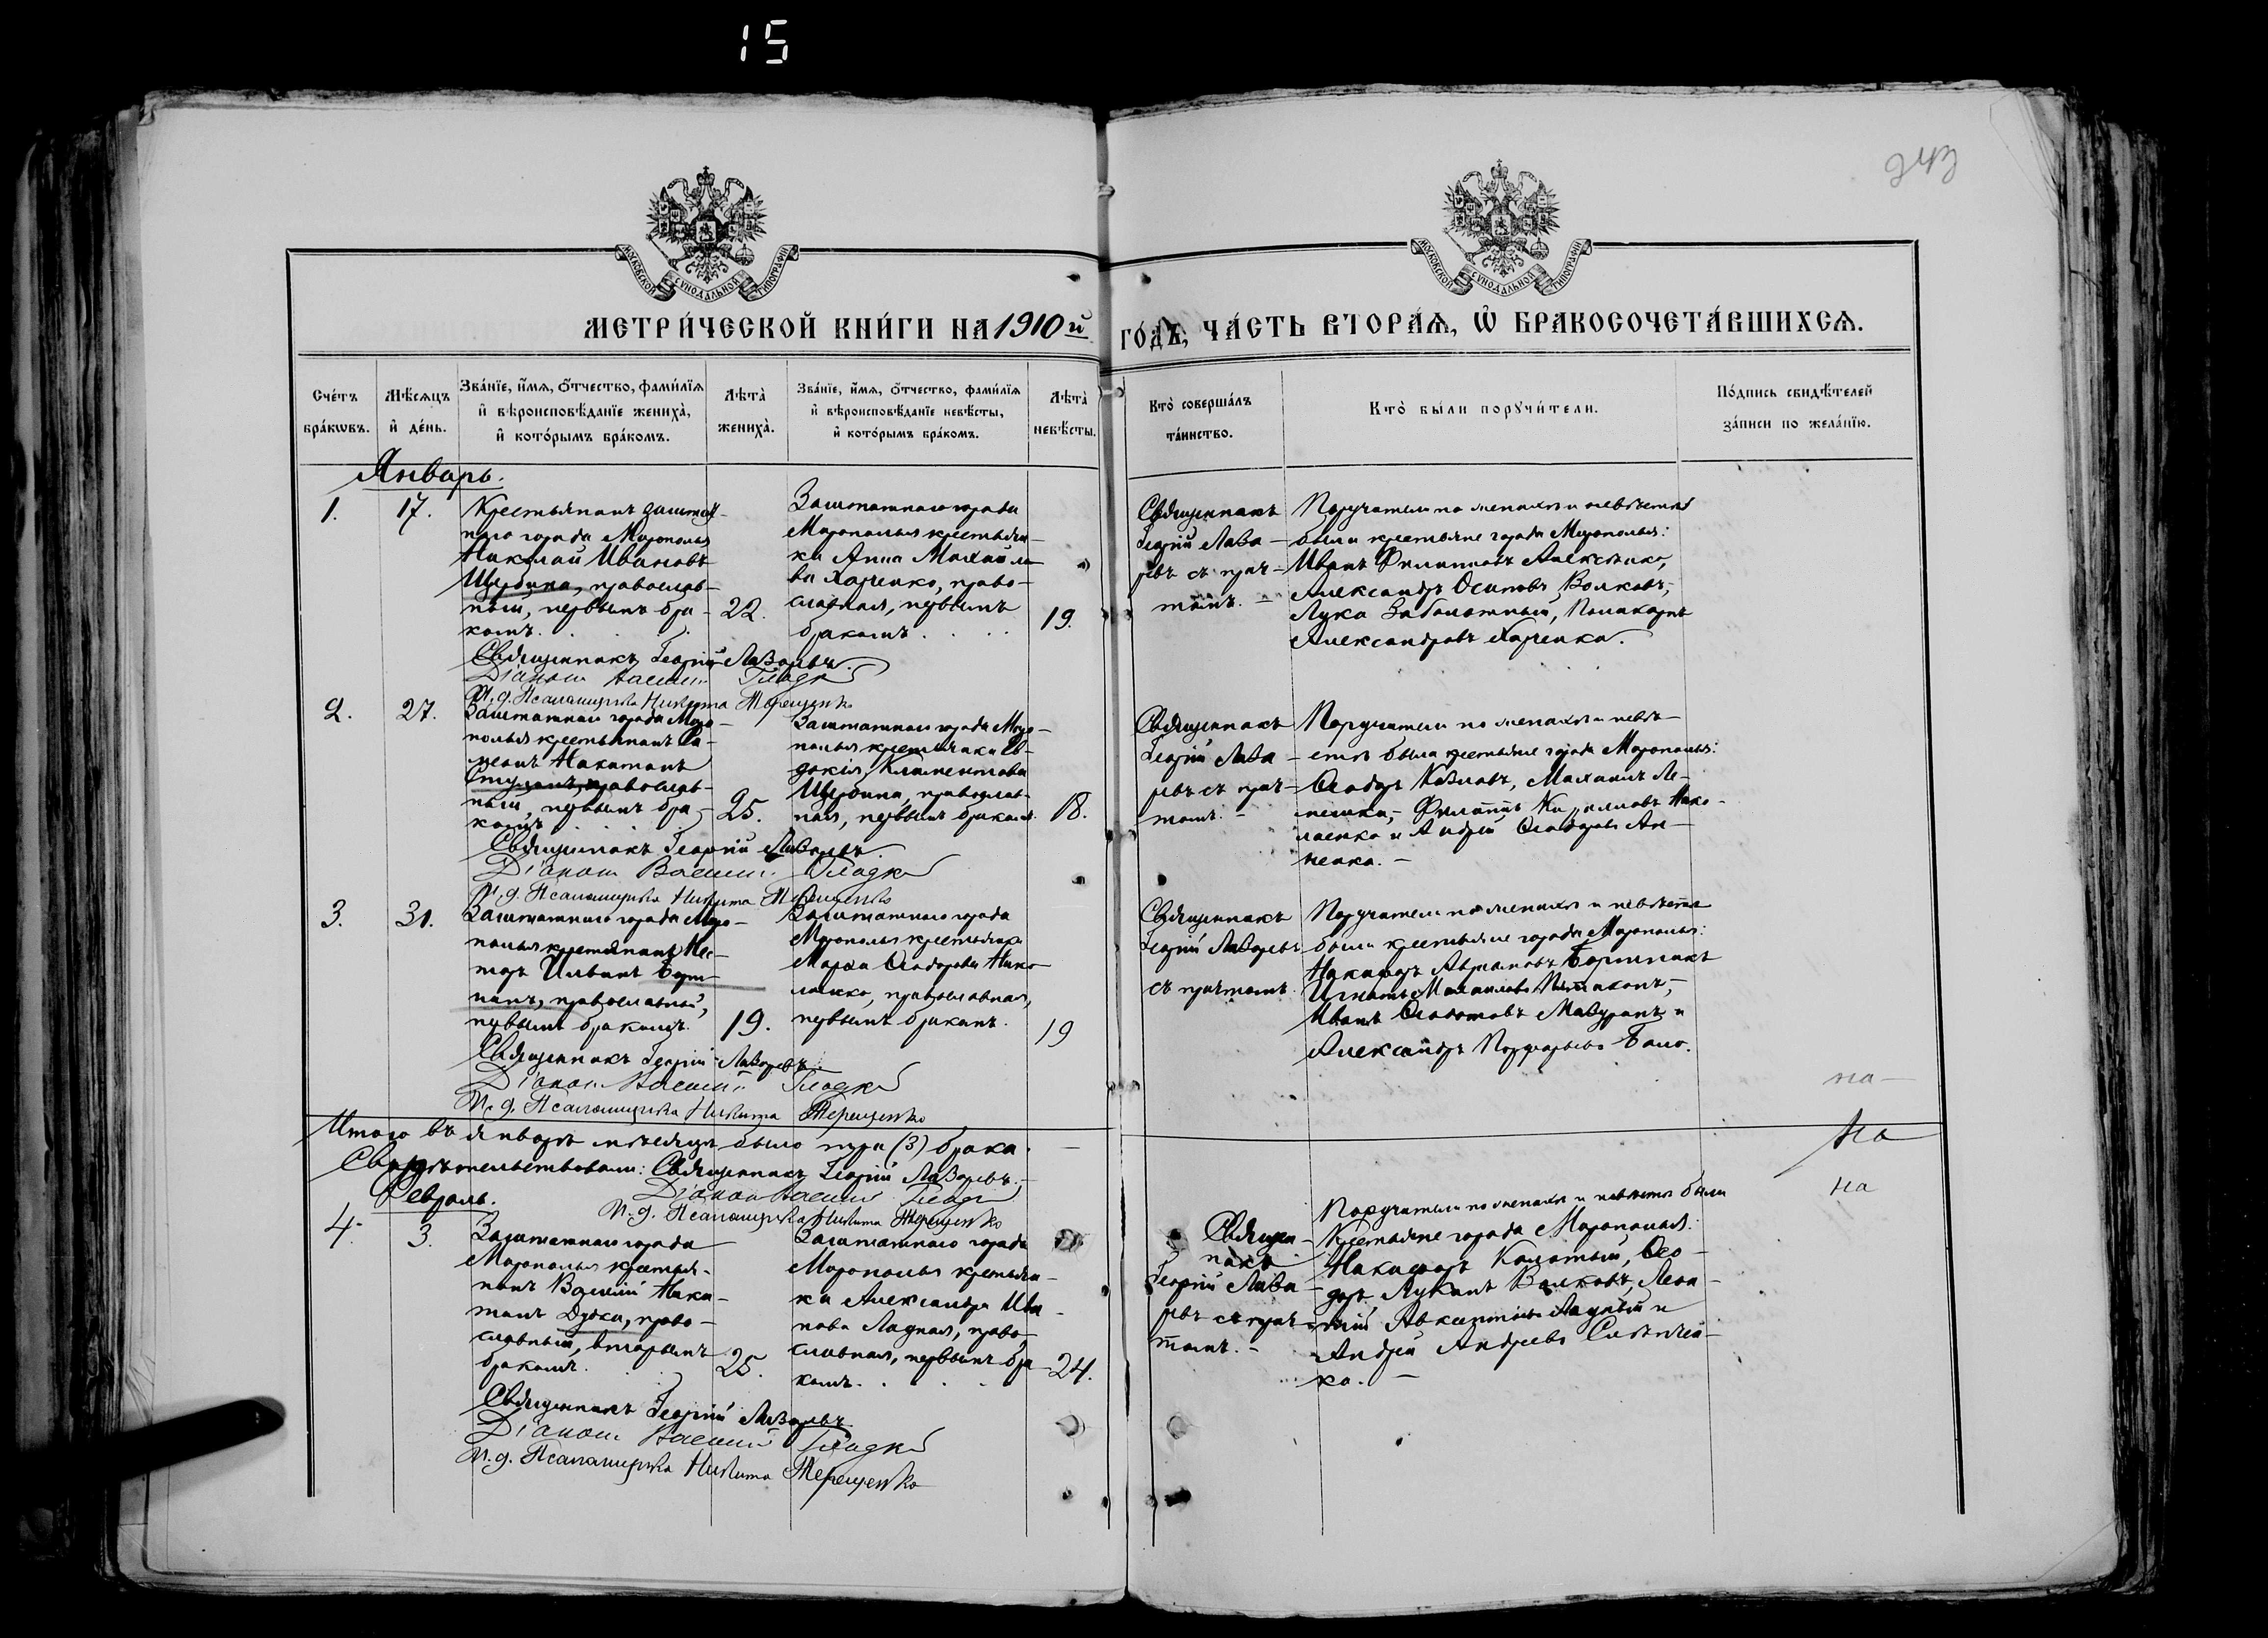 15
243
МОСКОВСКОЙ СѴНОДАЛЬНОЙ ТИПОГРАФІИ
МОСКОВСКОЙ СѴНОДАЛЬНОЙ ТИПОГРАФІИ
МЕТРИ́ЧЕСКОЙ КНИ́ГИ НА 1910 й ГО́ДЪ, ЧА́СТЬ ВТОРА́Ѧ, Ѡ҆ БРАКОСОЧЕТА́ВШИХСѦ.
Сче́тъ
бра́кѡвъ.
Мѣ́сѧцъ
и҆ де́нь.
Зва́нїе, и҆́мѧ, ѻ҆́тчество, фами́лїѧ
и҆ вѣроисповѣ́данїе жениха̀,
и҆ кото́рымъ бра́комъ.
Лѣта̀
жениха̀.
Зва́нїе, и҆́мѧ, ѻ҆́тчество, фами́лїѧ
и҆ вѣроисповѣ́данїе невѣ́сты,
и҆ кото́рымъ бра́комъ.
Лѣта̀
невѣ́сты.
Кто̀ соверша́лъ
та́инство.
Кто̀ бы́ли порꙋчи́тели.
По́дпись свидѣ́телей
за́писи по жела́нїю.
Январь.
1.
17.
Крестьянинъ заштат-
наго города Мирополья
Николай Ивановъ
Щербина, православ-
ный, первымъ бра-
комъ.
22.
Заштатнаго города
Мирополья крестьян-
ка Анна Михайло-
ва Харченко, право-
славная, первымъ
бракомъ.
19.
Священникъ
Георгій Лаза-
ревъ съ прич-
томъ.
Поручители по женихѣ и невѣстѣ
были крестьяне города Мирополья:
Иванъ Филипповъ Алексѣнко,
Александръ Осиповъ Волковъ,
Лука Заболотный, Поликарпъ
Александровъ Харченко.
Священникъ Георгій Лазаревъ.
Діаконъ Василій Гладкій
И. д. Псаломщика Никита Терещенко
2.
27.
Заштатнаго города Миро-
полья крестьянинъ Си-
меонъ Никитинъ
православ-
ный, первымъ бра-
комъ
25.
Заштатнаго города Миро-
полья крестьянка Ев-
докія Климентова
Щербина, православ-
ная, первымъ бракомъ.
18.
Священникъ
Георгій Лаза-
ревъ съ прич-
томъ.
Поручители по женихѣ и невѣ-
стѣ были крестьяне города Мирополья:
Ѳеодоръ Козловъ, Михаилъ Ле-
Филиппъ Кирилловъ Нико-
лаенко и Андрей Ѳеодоровъ
Священникъ Георгій Лазаревъ.
Діаконъ Василій Гладкій
И. д. Псаломщика Никита Терещенко
3.
31.
Заштатнаго города Миро-
полья крестьянинъ Нес-
торъ Ильинъ
православный,
первымъ бракомъ.
19.
Заштатнаго города
Мирополья крестьянка
Марѳа Ѳеодорова Нико-
ленко, православная,
первымъ бракомъ.
19
Священникъ
Георгій Лазаревъ
съ причтомъ.
Поручители по женихѣ и невѣстѣ
были крестьяне города Мирополья:
Никифоръ
Игнатъ Михаиловъ
Иванъ Мазуринъ и
Александръ Порфирьевъ Бало.
Священникъ Георгій Лазаревъ.
Діаконъ Василій Гладкій
И. д. Псаломщика Никита Терещенко
на
Итого въ январѣ мѣсяцѣ было три (3) брака.
На
Свидѣтельствовали: Священникъ Георгій Лазаревъ.
Діаконъ Василій Гладкій
И. д. Псаломщика Никита Терещенко
на
Февраль.
4.
3.
Заштатнаго города
Мирополья крестья-
нинъ Василій Ники-
тинъ Дудка, право-
славный, вторымъ
бракомъ.
25.
Заштатнаго города
Мирополья крестьян-
ка Александра Ива-
нова Ладная, право-
славная, первымъ бра-
комъ.
24.
Священ-
никъ
Георгій Лаза-
ревъ съ прич-
томъ.
Поручители по женихѣ и невѣстѣ были
крестьяне города Мирополья:
Никифоръ Ѳео-
доръ Лукинъ Волковъ, Леон-
тій Ладный и
Андрей Андреевъ
ко.
Священникъ Георгій Лазаревъ
Діаконъ Василій Гладкій
И. д. Псаломщика Никита Терещенко